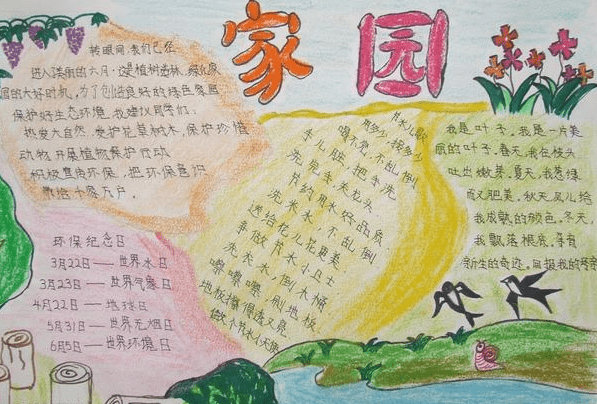 家园
转眼间,我们已经
进入美丽的六月,这是植树造林、绿化家
园的大好时机,为了创造良好的绿色家园
保护好生态环境,我建议同学们:
热爱大自然,爱护花草树木,保护珍惜
动物,开展植物保护行动
积极宣传环保,把环保意识
带给千家万户。
环保纪念日
3月22日——世界水日
3月23日——世界气象日
4月22日——地球日
5月31日——世界无烟日
6月5日——世界环境日
节水儿歌
用多少,接多少
喝不完,不乱倒
手儿脏,把手洗
洗完手,关龙头
节约用水好品质
洗米水,不乱倒
送给花儿花更美
争做节水小卫士
洗米水,倒水桶
嚓嚓嚓,刷地板
地板擦得透又亮
我是叶子。我是一片美
丽的叶子。春天,我在枝头
吐出嫩芽。夏天,我葱绿
而又肥美。秋天,风儿给
我成熟的颜色。冬天,
我飘落根底,孕育
新生的奇迹。